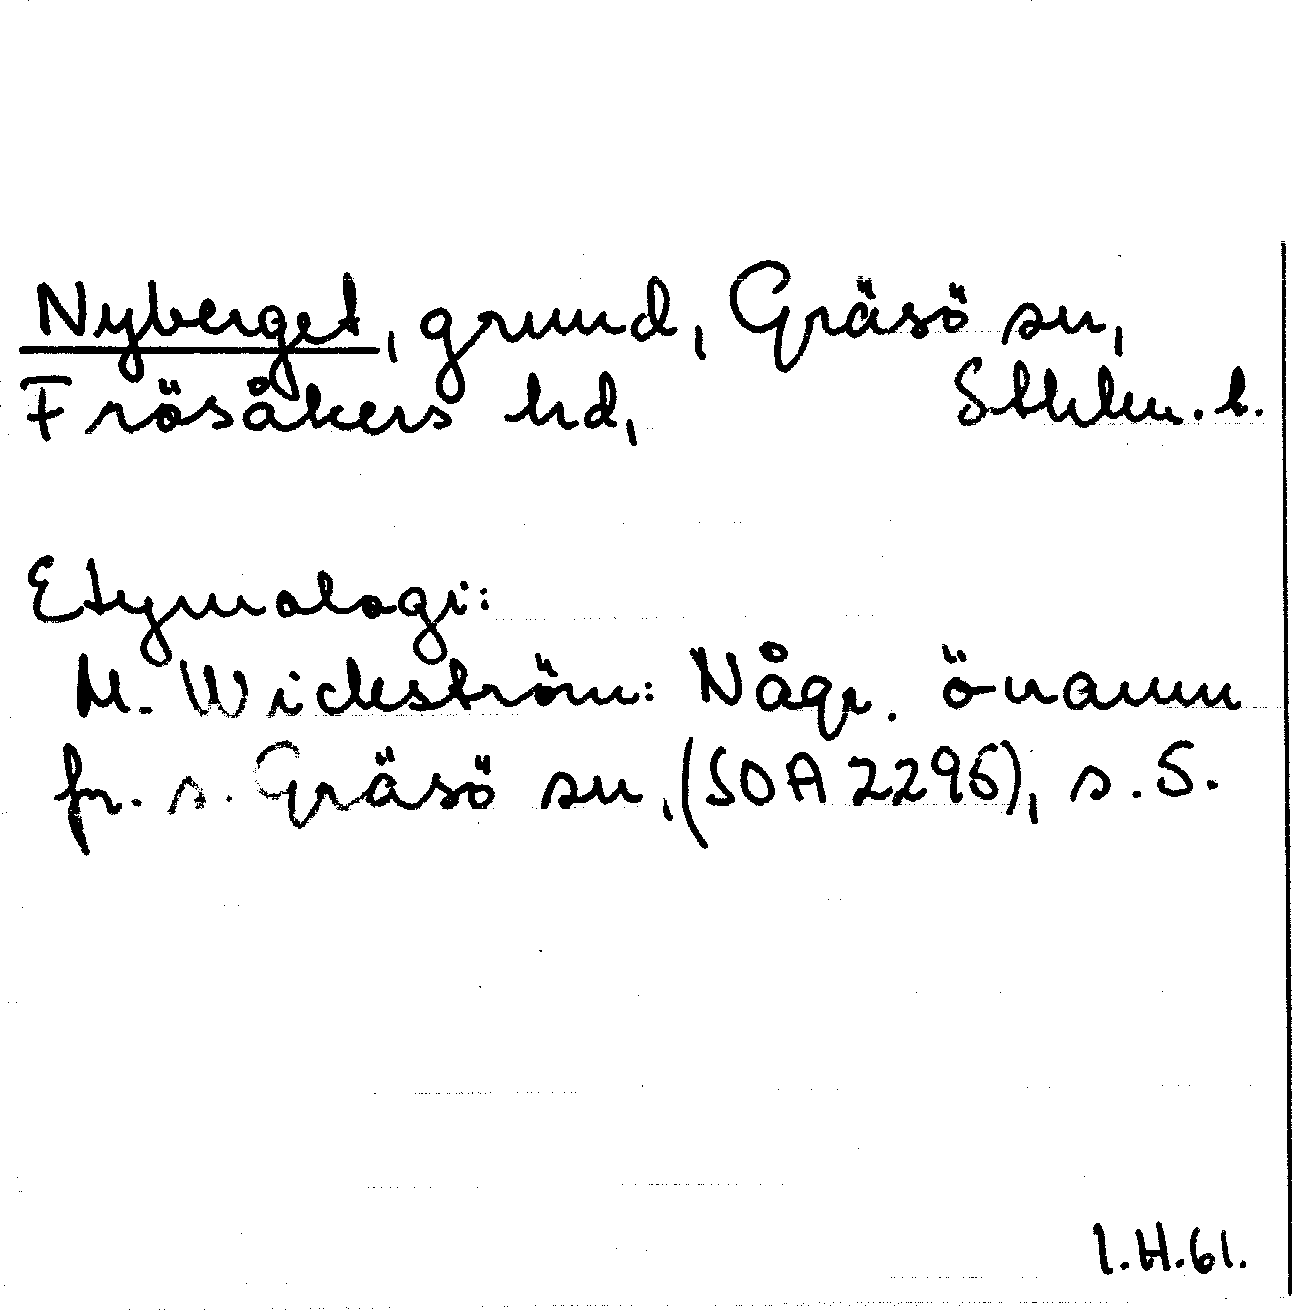 Nyberget, grund, Gräsö sn,
Frösåkers hd, Sthlm. l.
Etymologi:
M. Wickström: Någr. önamn
fr. s. Gräsö sn, (SOA 2295), s. 5.
I.H.61.